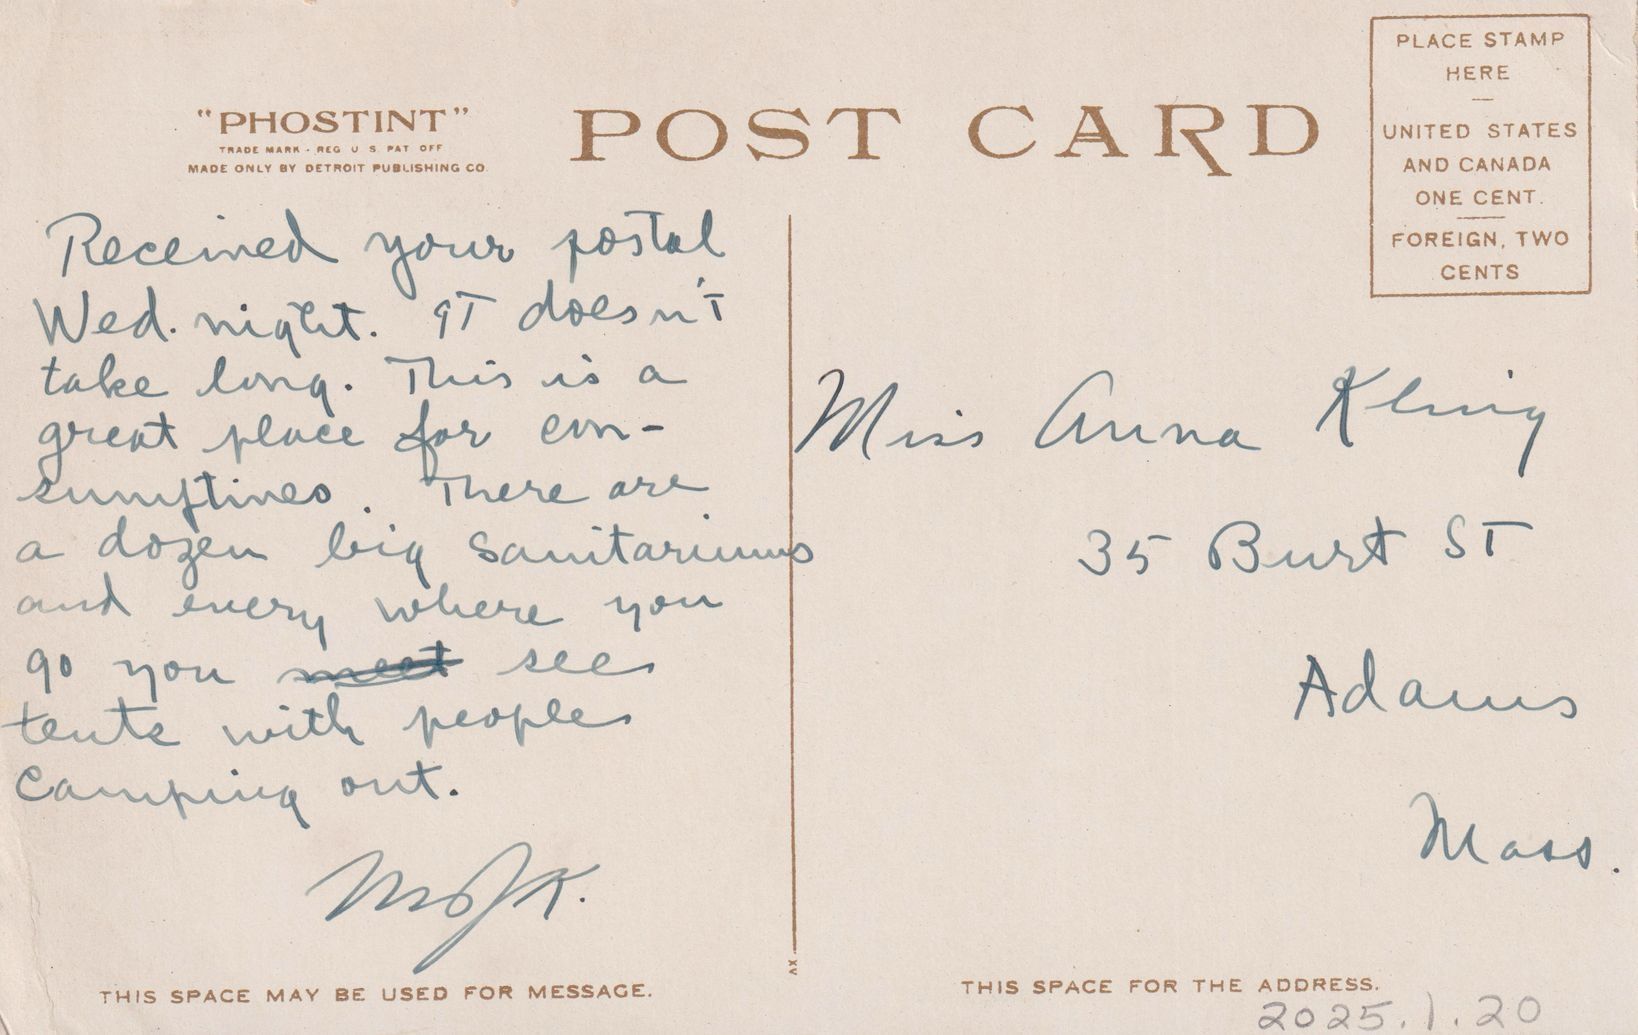 "PHOSTINT"
TRADE MARK - REG U S. PAT OFF
MADE ONLY BY DETROIT PUBLISHING CO.
POST CARD
PLACE STAMP
HERE
UNITED STATES
AND CANADA
ONE CENT.
FOREIGN, TWO
CENTS
Received your postal
Wed. night. It doesn't
take long. This is a
great place for con-
sumptives. There are
a dozen big sanitariums
and every where you
go you meet see
tents with people
camping out.
Miss Anna Kling
35 Burt St
Adams
Mass.
XV
THIS SPACE MAY BE USED FOR MESSAGE.
THIS SPACE FOR THE ADDRESS.
2025.1.20